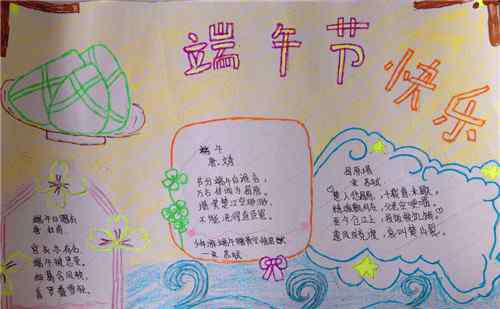 端午节
快乐
端午日赐衣
唐 杜甫
宫衣亦有名
端午被恩荣
细葛含风软
香罗叠雪轻
端午
唐.
节分端午自谁言,
万古传闻为屈原。
堪笑楚江空渺渺,
不能洗得直臣冤。
少年游 端午赠黄守徐君猷
—宋 苏轼
屈原塔
宋 苏轼
楚人悲屈原,千载意未歇。
精魂飘何处,父老空哽咽。
至今仓江上,投饭救饥渴。
遗风成竞渡,哀叫楚山裂。